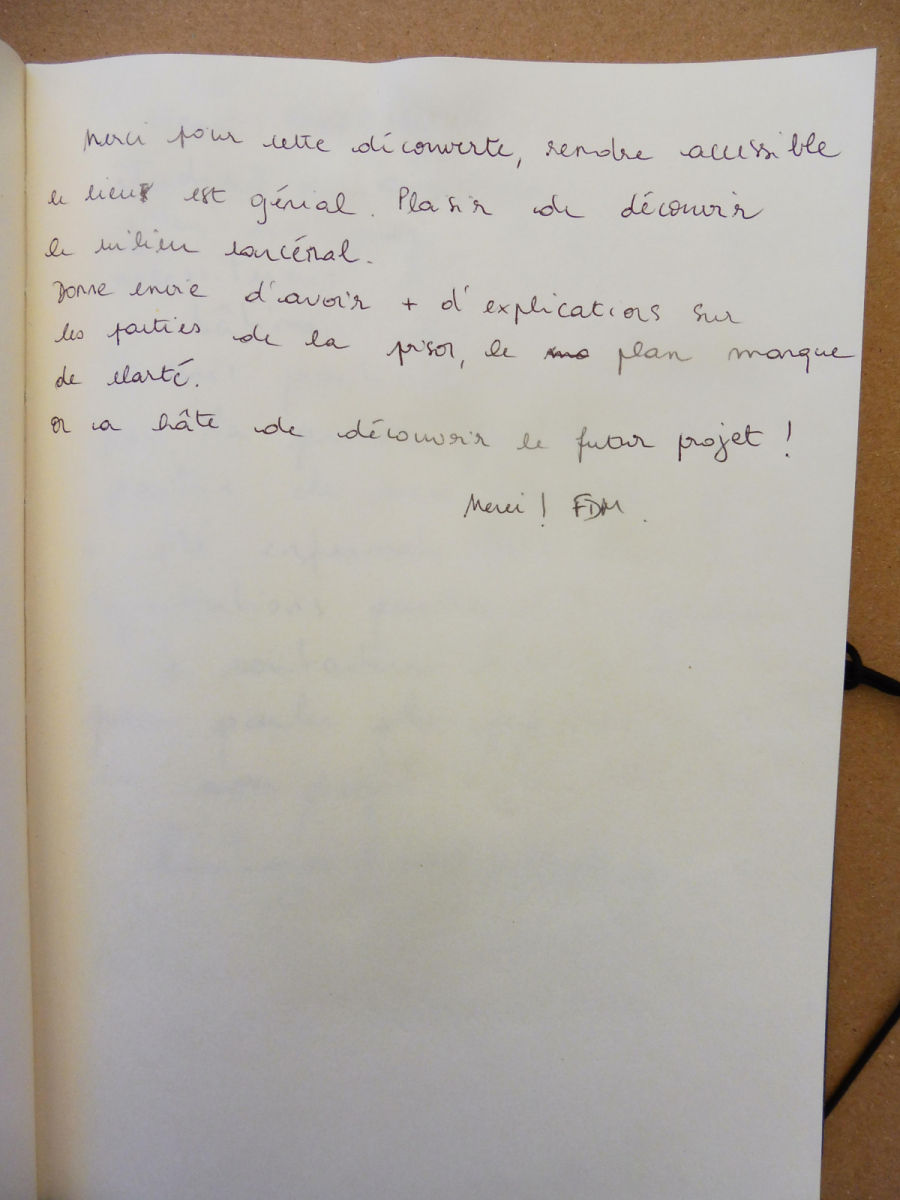 Merci pour cette découverte, rendre accessible
le lieu est génial. Plaisir de découvrir
le milieu carcéral.
Donne envie d'avoir + d'explications sur
les parties de la prison, le plan manque
de clarté.
On a hâte de découvrir le futur projet !
Merci ! FDM.